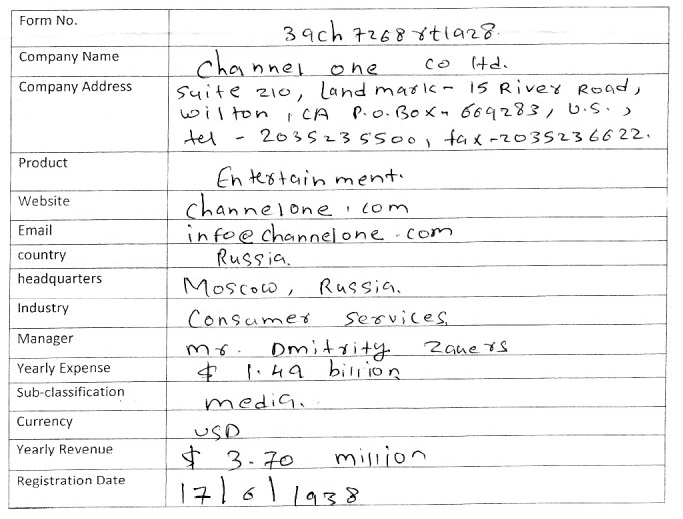 Form No. 39ch7268rt1928.
Company Name Channel one co ltd.
Company Address Suite 210, Landmark- 15 River Road,
wilton, CA P.O.Box- 669283, U.S.,
tel - 2035235500, fax-2035236622.
Product Entertainment.
Website channelone.com
Email info@channelone.com
country Russia.
headquarters Moscow, Russia.
Industry Consumer services.
Manager mr. Dmitrity Zaners
Yearly Expense $ 1.49 billion
Sub-classification media.
Currency USD
Yearly Revenue $ 3.70 million
Registration Date 17/6/1938